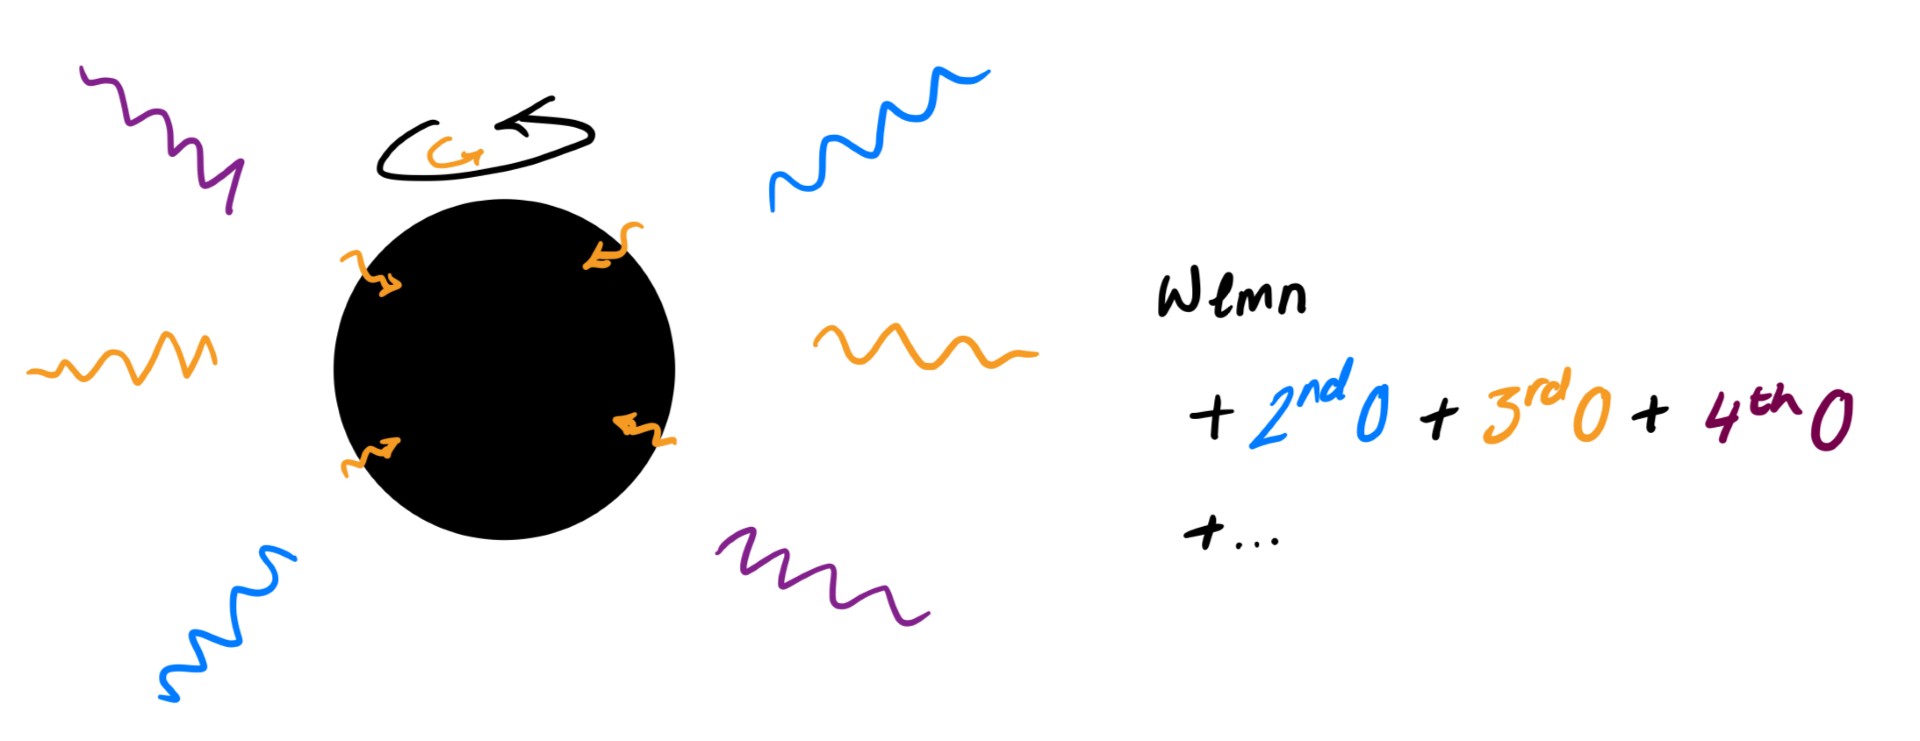 Wlmn
+ 2nd O + 3rd O + 4th O
+...